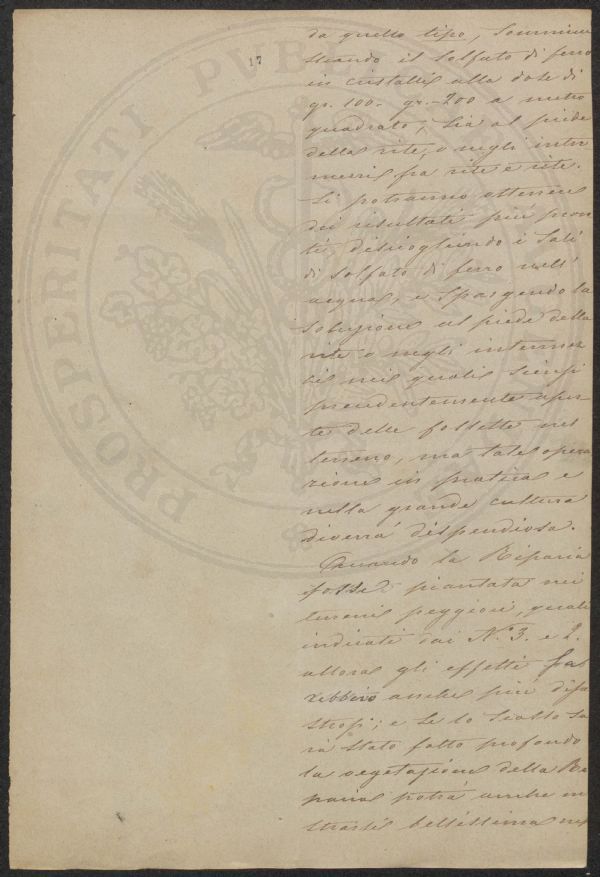 17
da quello tipo, sommini
strando il solfato di ferro
in cristalli alla dose di
gr. 100. gr. 200 a metro
quadrato, sia al piede
della vite, o negli inter
mezzi fra vite e vite.
Si potranno ottenere
dei risultati più pron
ti, disciogliendo i Sali
di solfato di ferro nell'
acqua, e spargendo la
soluzione al piede della
vite o negli intermez
zi nei quali siensi
precedentemente aper
te delle fossette nel
terreno, ma tale opera
zione in pratica e
nella grande cultura
diverrà dispendiosa.
Quando la Riparia
fosse piantata nei
terreni peggiori, quali
indicati dai N.i 3. e 2.
allora gli effetti sa
rebbero anche più disa
strosi; e se lo scasso sa
rà stato fatto profondo
la vegetazione della Ri
paria potrà anche mo
strarsi bellissima nel
PROSPERITATI PVBL